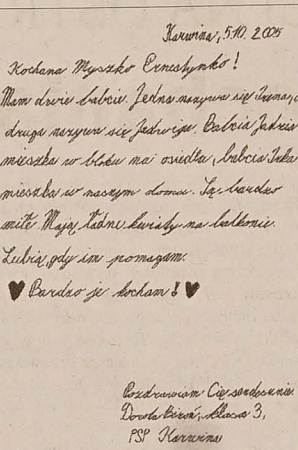 Karwina, 5.10. 2005
Kochana Myszko Ernestynko!
Mam dwie babcie. Jedna nazywa się Irena, a
druga nazywa się Jadwiga. Babcia Jadzia
mieszka w bloku na osiedlu, babcia Irka
mieszka w naszym domu. Są bardzo
miłe. Mają ładne kwiaty na balkonie.
Lubią, gdy im pomagam.
♥ Bardzo je kocham! ♥
Pozdrawiam Cię serdecznie.
Dorota klasa 3,
PSP Karwina